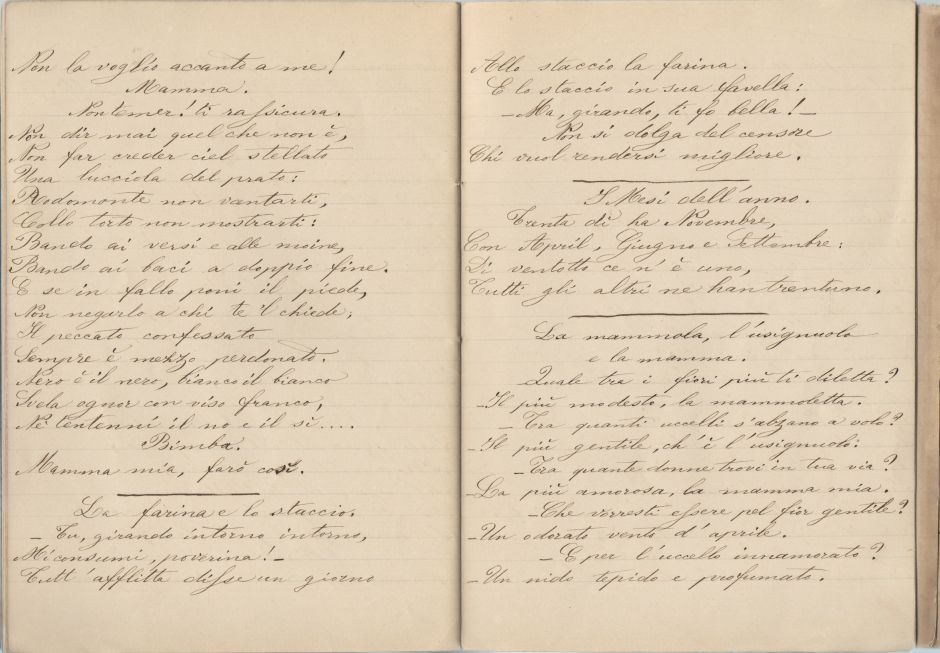 Non la voglio accanto a me!
Mamma.
Non temer! ti rassicura.
Non dir mai quel che non è,
Non far creder ciel stellato
Una lucciola del prato:
Rodomonte non vantarti,
Collo torto non mostrarti:
Bando ai versi e alle moine,
Bando ai baci a doppio fine.
E se in fallo poni il piede,
Non negarlo a chi te 'l chiede;
Il peccato confessato
Sempre è mezzo perdonato.
Nero è il nero, bianco il bianco
Svela ognor con viso franco,
Nè tentenni il no e il sì....
Bimba.
Mamma mia, farò così.
La farina e lo staccio.
– Tu, girando intorno intorno,
Mi consumi, poverina! –
Tutt'afflitta disse un giorno
Allo staccio la farina.
E lo staccio in sua favella:
– Ma, girando, ti fo bella! –
Non si dolga del censore
Chi vuol rendersi migliore.
I Mesi dell'anno.
Trenta dì ha Novembre,
Con April, Giugno e Settembre:
Di ventotto ce n'è uno,
Tutti gli altri ne han trentuno.
La mammola, l'usignuolo
e la mamma.
Quale tra i fiori più ti diletta?
– Il più modesto, la mammoletta.
– Tra quanti uccelli s'alzano a volo?
– Il più gentile, ch'è l'usignuolo:
– Tra quante donne trovi in tua via?
– La più amorosa, la mamma mia.
– Che vorresti essere pel fior gentile?
– Un odorato vento d'aprile.
– E per l'uccello innamorato?
– Un nido tepido e profumato.